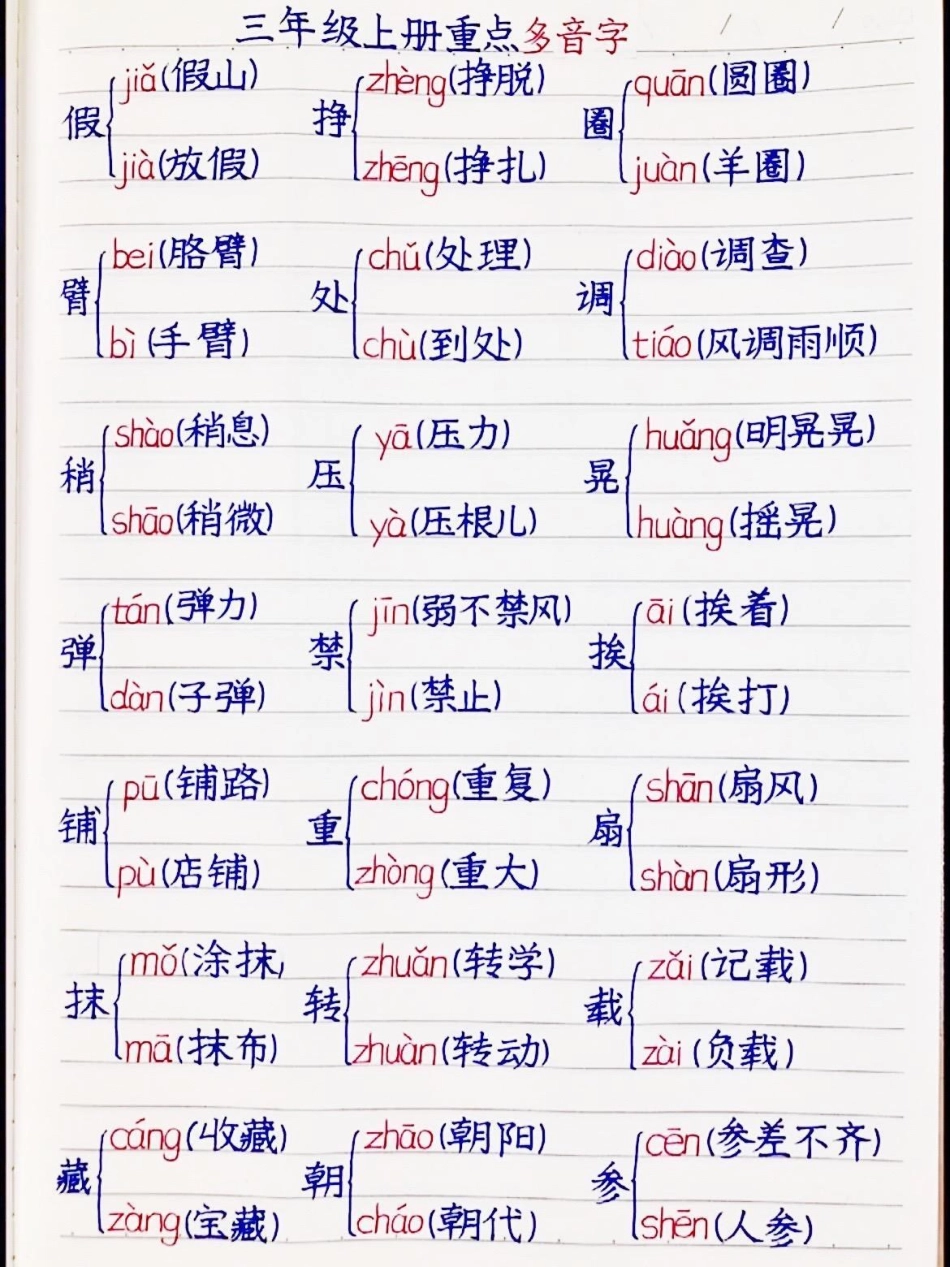 三年级上册重点多音字
jiǎ(假山) zhèng(挣脱) quān(圆圈)
假 挣 圈
jià(放假) zhēng(挣扎) juàn(羊圈)
bei(胳臂) chǔ(处理) diào(调查)
臂 处 调
bì(手臂) chù(到处) tiáo(风调雨顺)
shào(稍息) yā(压力) huǎng(明晃晃)
稍 压 晃
shāo(稍微) yà(压根儿) huàng(摇晃)
tán(弹力) jīn(弱不禁风) āi(挨着)
弹 禁 挨
dàn(子弹) jìn(禁止) ái(挨打)
pū(铺路) chóng(重复) shān(扇风)
铺 重 扇
pù(店铺) zhòng(重大) shàn(扇形)
mǒ(涂抹) zhuǎn(转学) zǎi(记载)
抹 转 载
mā(抹布) zhuàn(转动) zài(负载)
cáng(收藏) zhāo(朝阳) cēn(参差不齐)
藏 朝 参
zàng(宝藏) cháo(朝代) shēn(人参)